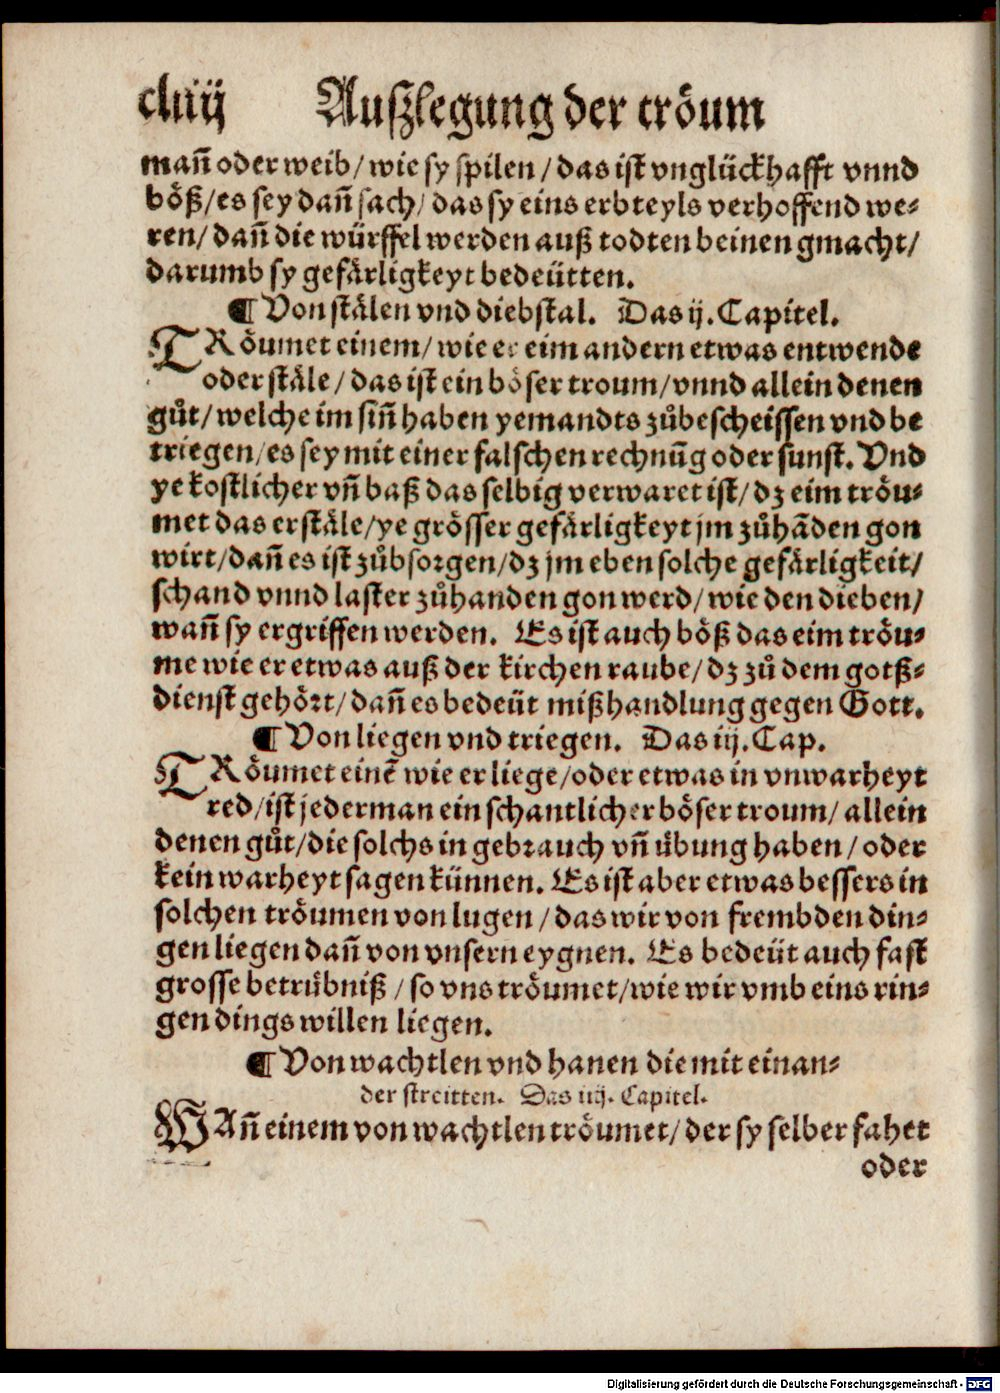 cliiij Außlegung der tröum
mañ oder weib/ wie sy spilen/ das ist vnglückhafft vnnd
böß/ es sey dañ sach/ das sy eins erbteyls verhoffend we⸗
ren/ dañ die würffel werden auß todten beinen gmacht/
darumb sy gefärligkeyt bedeütten.
¶ Von stälen vnd diebstal. Das ij. Capitel.
TRöumet einem/ wie er eim andern etwas entwende
oder stäle/ das ist ein böser troum/ vnnd allein denen
gůt/ welche im siñ haben yemandts zůbescheissen vnd be
triegen/ es sey mit einer falschen rechnũg oder sunst. Vnd
ye kostlicher vñ baß das selbig verwaret ist/ dz eim tröu⸗
met das er stäle/ ye grösser gefärligkeyt jm zůhãden gon
wirt/ dañ es ist zůbsorgen/ dz jm eben solche gefärligkeit/
schand vnnd laster zůhanden gon werd/ wie den dieben/
wañ sy ergriffen werden. Es ist auch böß das eim tröu⸗
me wie er etwas auß der kirchen raube/ dz zů dem gotß⸗
dienst gehört/ dañ es bedeüt mißhandlung gegen Gott.
¶ Von liegen vnd triegen. Das iij. Cap.
TRöumet einẽ wie er liege/ oder etwas in vnwarheyt
red/ ist jederman ein schantlicher böser troum/ allein
denen gůt/ die solchs in gebrauch vñ übung haben/ oder
kein warheyt sagen künnen. Es ist aber etwas bessers in
solchen tröumen von lugen/ das wir von frembden din⸗
gen liegen dañ von vnsern eygnen. Es bedeüt auch fast
grosse betrübniß/ so vns tröumet/ wie wir vmb eins rin⸗
gen dings willen liegen.
¶ Von wachtlen vnd hanen die mit einan⸗
der streitten. Das iiij. Capitel.
WAñ einem von wachtlen tröumet/ der sy selber fahet
oder
Digitalisierung gefördert durch die Deutsche Forschungsgemeinschaft - DFG